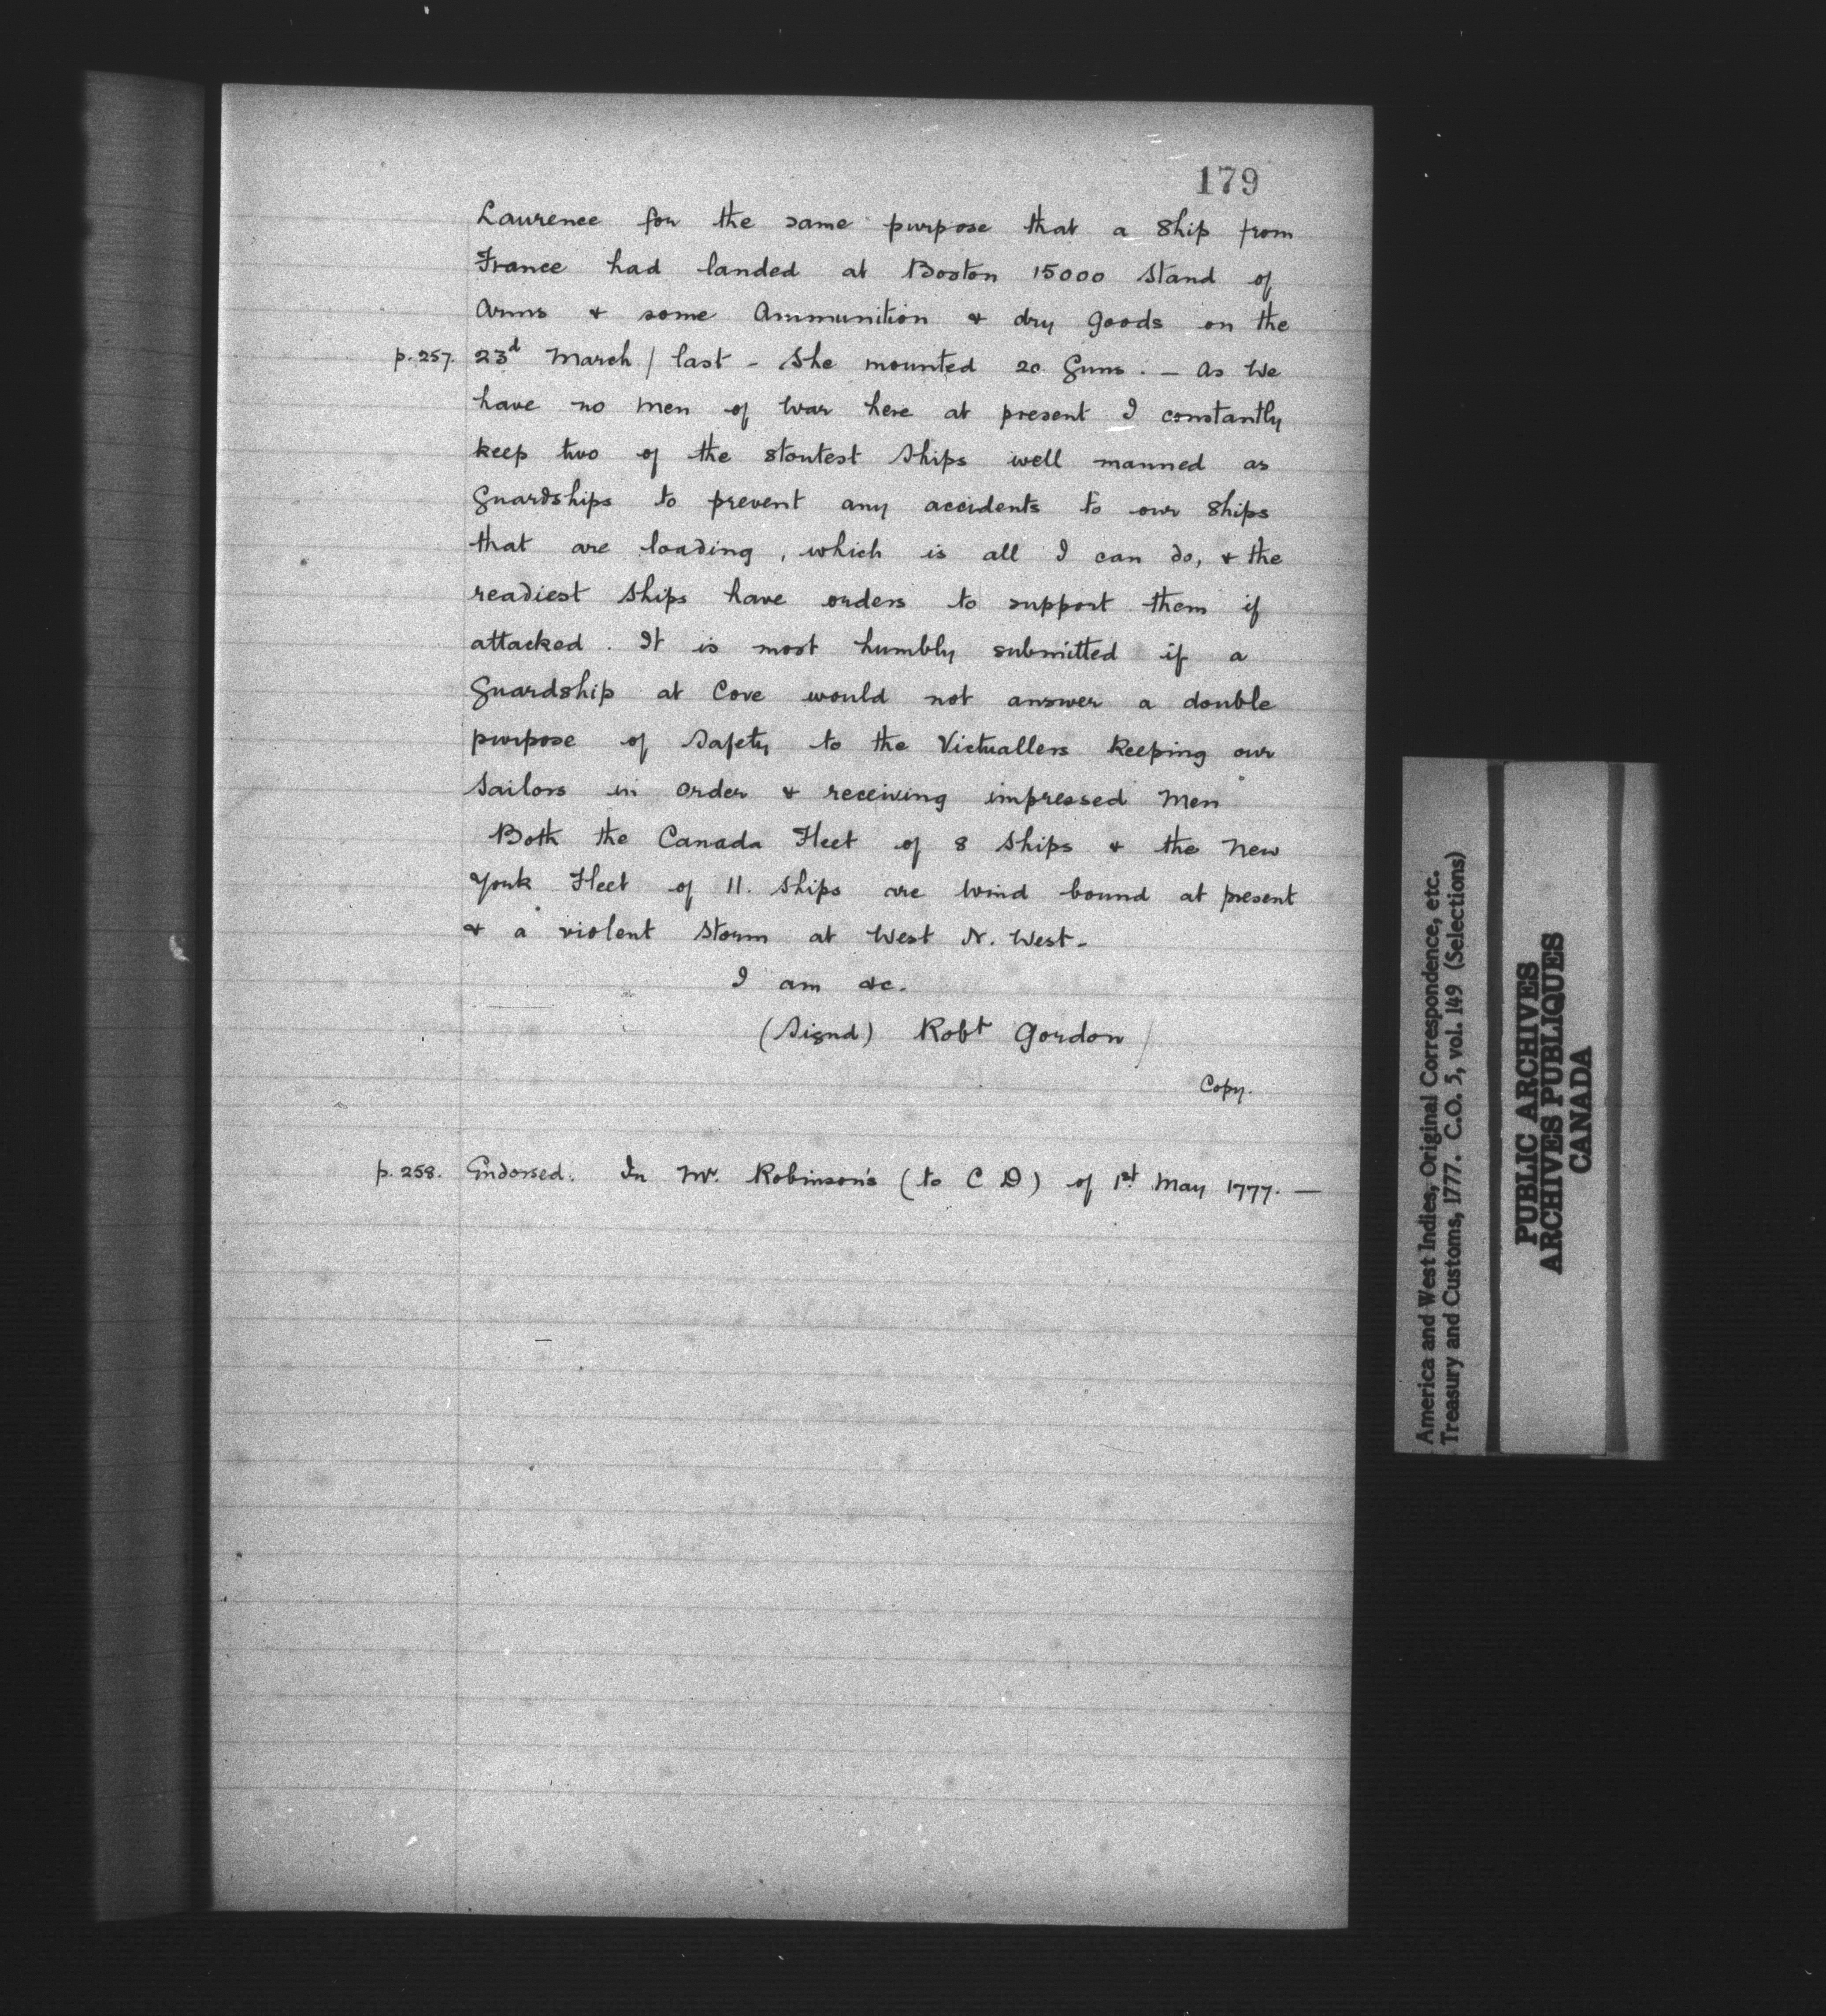 179
Laurence for the same purpose that a Ship from
France had landed at Boston 15000 Stand of
Arms & some Ammunition & dry goods on the
p. 257. 23d March / last - She mounted 20 Guns. - As We
have no Men of War here at present I constantly
keep two of the stoutest Ships well manned as
Guardships to prevent any accidents to our Ships
that are loading, which is all I can do, & the
readiest Ships have orders to support them if
attacked. It is most humbly submitted if a
Guardship at Cove would not answer a double
purpose of Safety to the Victuallers Keeping our
Sailors in Order & receiving impressed Men
Both the Canada Fleet of 8 Ships & the New
York Fleet of 11. Ships are Wind bound at present
& a violent Storm at West N. West-
I am &c.
(Signd) Robt Gordon /
Copy.
p. 258. Endorsed: In Mr. Robinson's (to C D) of 1st May 1777. —
America and West Indies, Original Correspondence, etc.
Treasury and Customs, 1777. C.O. 5, vol. 149 (Selections)
PUBLIC ARCHIVES
ARCHIVES PUBLIQUES
CANADA